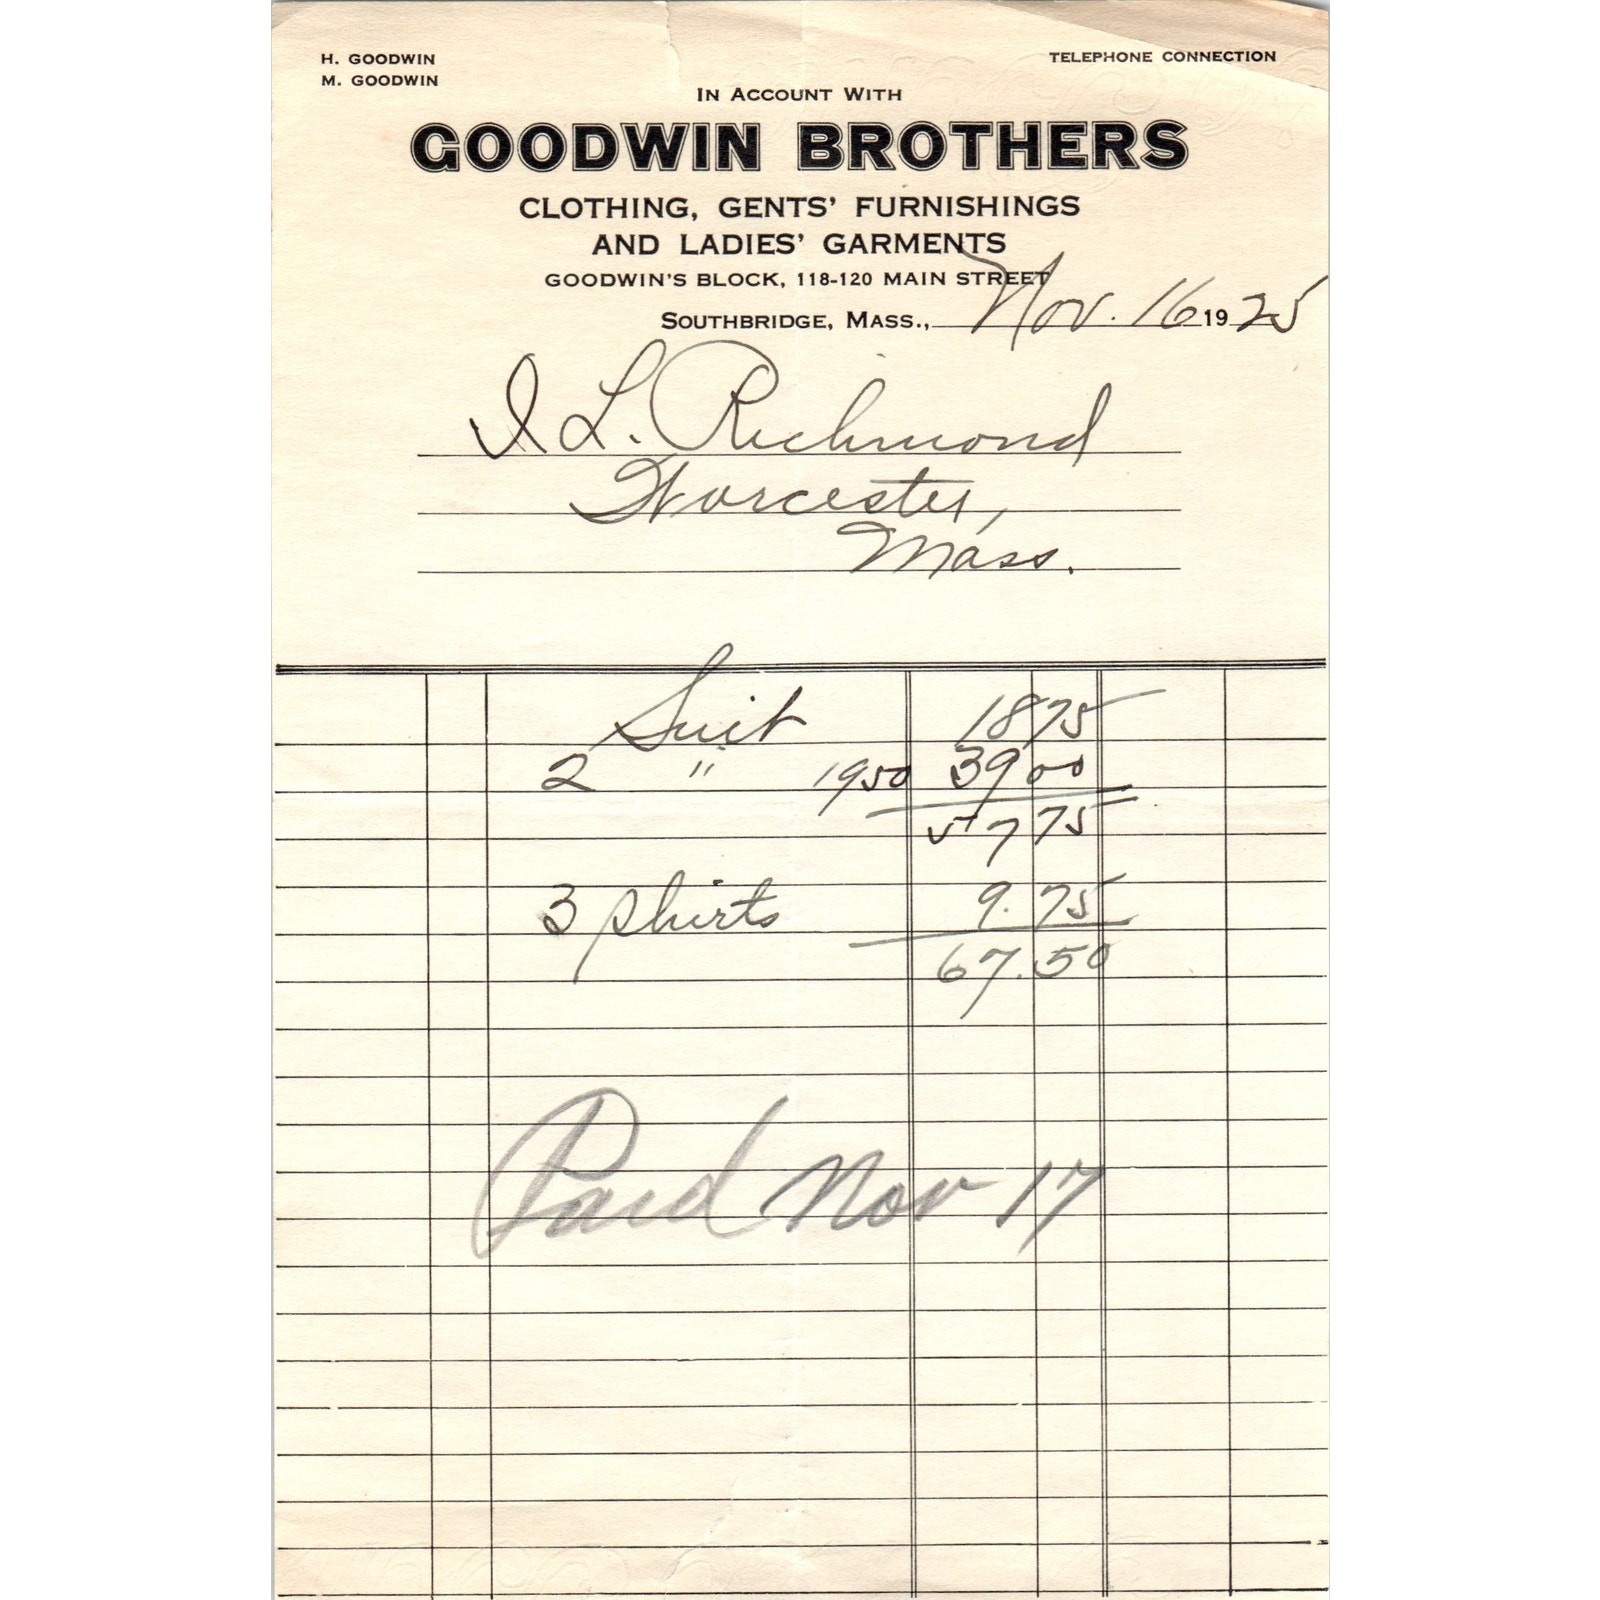 H. GOODWIN
M. GOODWIN
TELEPHONE CONNECTION
IN ACCOUNT WITH
GOODWIN BROTHERS
CLOTHING, GENTS' FURNISHINGS
AND LADIES' GARMENTS
GOODWIN'S BLOCK, 118-120 MAIN STREET
SOUTHBRIDGE, MASS., Nov. 16 1925
I L. Richmond
Worcester,
Mass.
Suit 18 75
2 " 19 50 39 00
57 75
3 shirts 9. 75
67. 50
Paid Nov 17